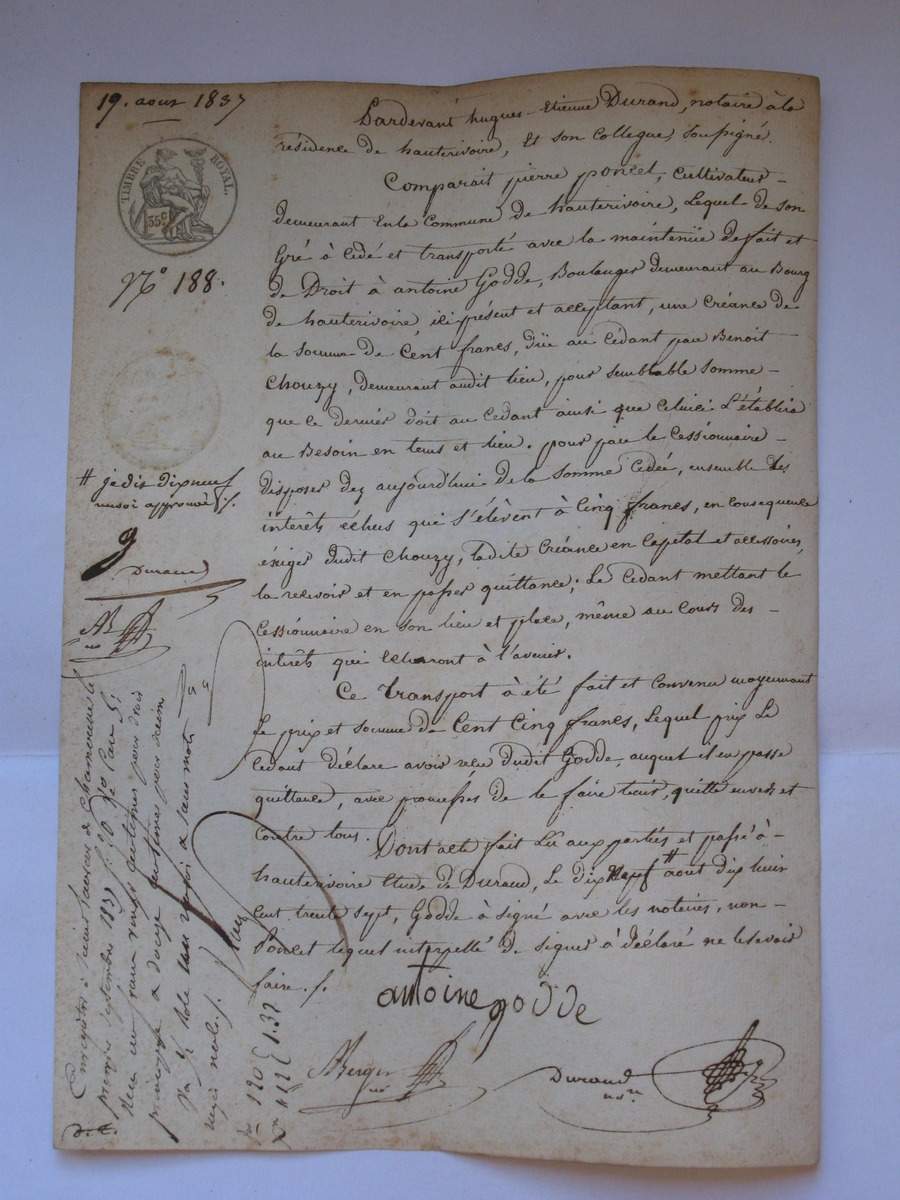 19. aout 1837
TIMBRE ROYAL.
35c
N° 188.
Pardevant hugues-Etienne Durand, notaire à la
résidence de hauterivoire, Et son Collegue, Soussigné.
Comparait pierre poncet, Cultivateur
demeurant En la Commune de hauterivoire, Lequel de son
Gré à Cédé et transporté avec la maintenüe de fait et
de Droit à antoine Godde, Boulanger demeurant au Bourg
de hauterivoire, ici présent et acceptant, une Créance de
la somme de Cent francs, düe au Cédant par Benoit
Chouzy, demeurant audit lieu, pour semblable Somme
que ce dernier doit au Cedant ainsi que celuici L'établira
au Besoin en tems et lieu. pour par le Cessionnaire
disposer dez aujourd'hui de la Somme Cédée, ensemble des
intérêts échus qui s'élèvent à Cinq francs, en Consequence
éxiger dudit Chouzy, ladite Créance en Capital et accessoires,
la recevoir et en passer quittance; Le Cedant mettant le
Cessionnaire en son lieu et place, même au Cours des
intérêts qui Echerront à l'avenir.
Ce transport à été fait et Convenu moyennant
Le prix et somme de Cent Cinq francs, Lequel prix Le
Cedant déclare avoir recu dudit Godde, auquel il en passe
quittance, avec promesses de le faire tenir, quitte envers et
Contre tous.
Dont acte fait Lû aux parties et passé à
hauterivoire Etude de Durand, Le dix neuf # aout dix huit
Cent trente Sept, Godde à signé avec les notaires, non
Poncet lequel interpellé de signer à déclaré ne le savoir
faire ./.
# je dis dix neuf
approuvé ./.
g
Durand
AB
antoine godde
ABerger
Durand
nore
Enregistré à Saint Laurent de Chamousset le
premier septembre 1837 f° 90 Vo Case 5:
Reçu un franc vingt centimes pour droit
principal & douze centimes pour décim
1 rôle un renvoi & sans mots
rayés nuls ./.
120 c
12 c
1.32